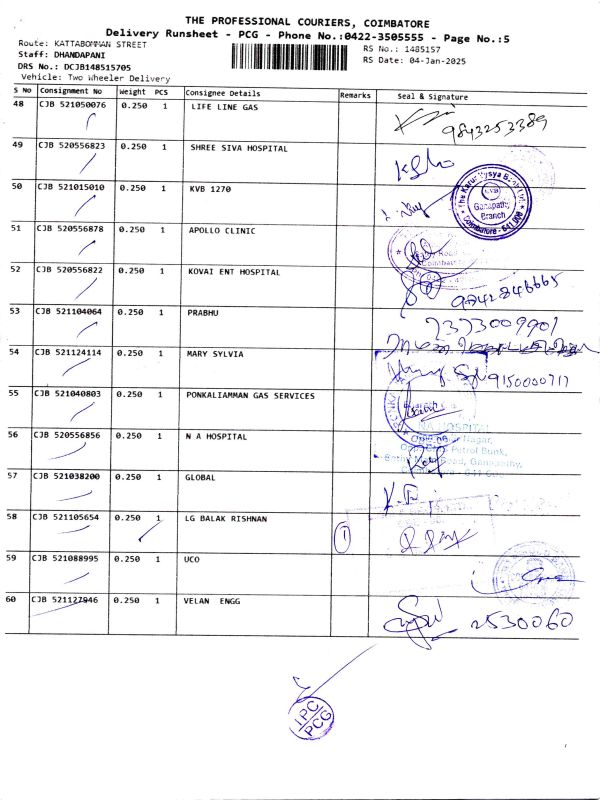 THE PROFESSIONAL COURIERS, COIMBATORE
Delivery Runsheet - PCG - Phone No.:0422-3505555 - Page No.:5
Route: KATTABOMMAN STREET
RS No.: 1485157
Staff: DHANDAPANI
RS Date: 04-Jan-2025
DRS No.: DCJB148515705
Vehicle: Two Wheeler Delivery
S No Consignment No Weight PCS Consignee Details Remarks Seal & Signature
48 CJB 521050076 0.250 1 LIFE LINE GAS 9843253389
49 CJB 520556823 0.250 1 SHREE SIVA HOSPITAL
50 CJB 521015010 0.250 1 KVB 1270
The Karur Vysya Bank Ltd.
KVB
Ganapathy
Branch
Coimbatore - 641 006
51 CJB 520556878 0.250 1 APOLLO CLINIC
52 CJB 520556822 0.250 1 KOVAI ENT HOSPITAL 9842846665
53 CJB 521104064 0.250 1 PRABHU 7373009901
54 CJB 521124114 0.250 1 MARY SYLVIA 9150000717
55 CJB 521040803 0.250 1 PONKALIAMMAN GAS SERVICES
56 CJB 520556856 0.250 1 N A HOSPITAL
HOSPITAL
Nagar,
Petrol Bunk,
Road, Ganapathy,
57 CJB 521038200 0.250 1 GLOBAL
58 CJB 521105654 0.250 1 LG BALAK RISHNAN 1
59 CJB 521088995 0.250 1 UCO
60 CJB 521127946 0.250 1 VELAN ENGG 2530060
IPC
PCG